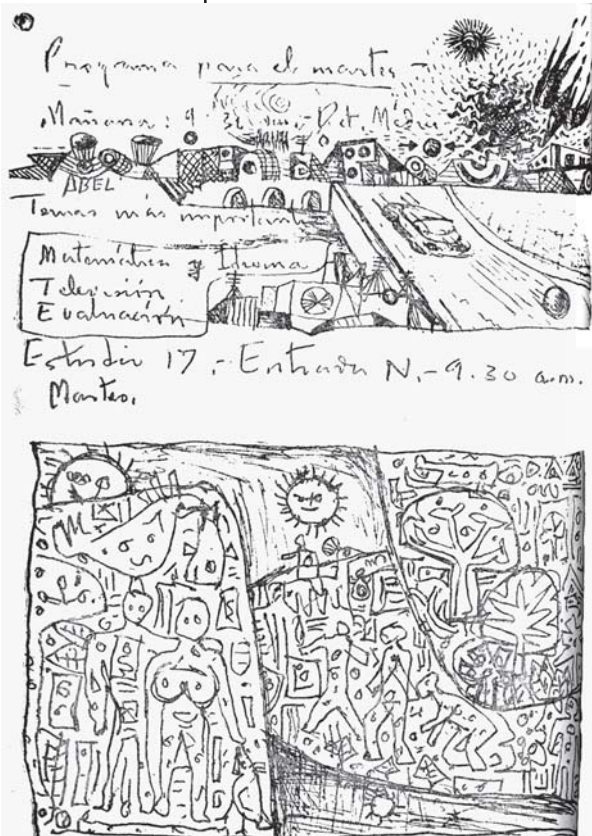 Programa para el martes -
Mañana: 9.30 am.-
ABEL
Temas más importantes
Matemática y Idioma
Televisión
Evaluación
Estudio 17.- Entrada N.- 9.30 a.m.
Martes.